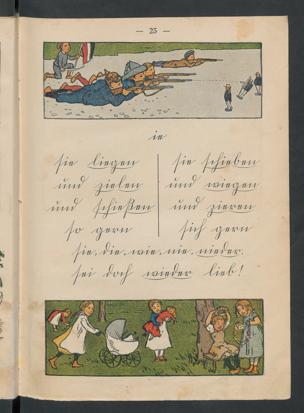 — 25 —
ie
sie liegen
und zielen
und schießen
so gern
sie schieben
und wiegen
und zieren
sich gern
sie, die, wie, nie, nieder.
sei doch wieder lieb!